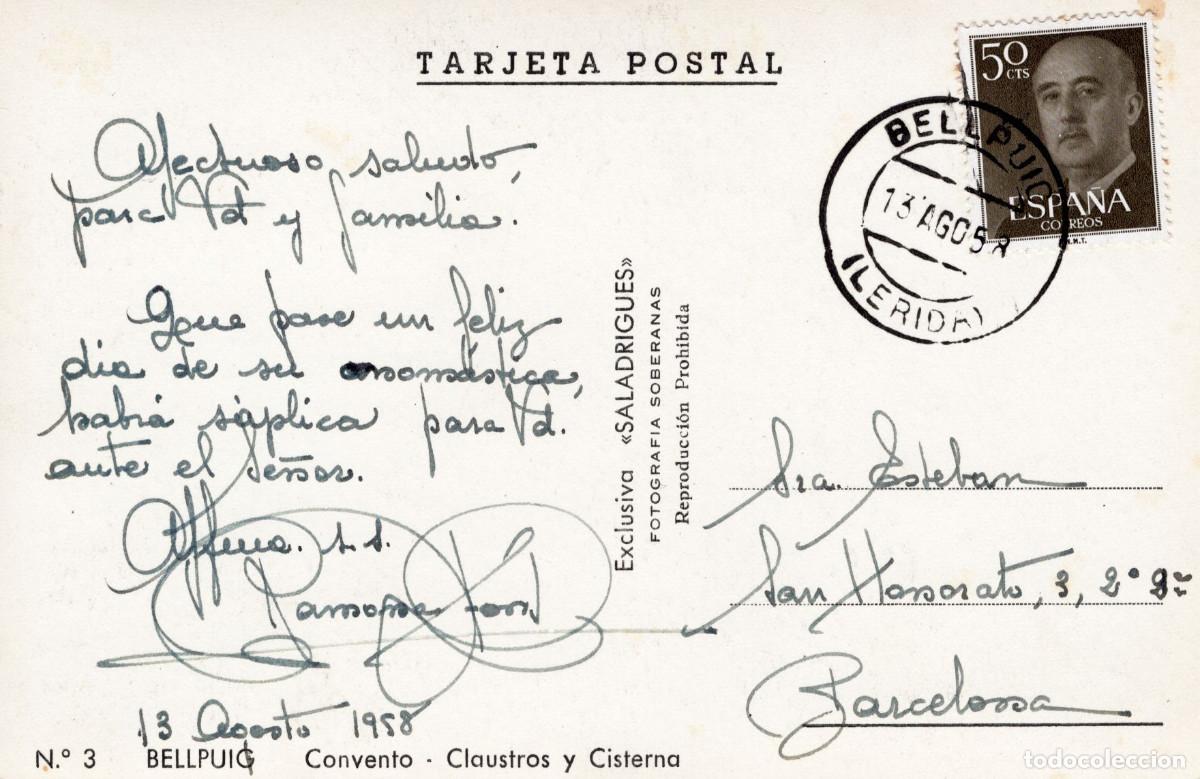 TARJETA POSTAL
Afectuoso saludo,
para Vd y familia.
Que pase un feliz
dia de su onomástica,
habrá súplica para Vd.
ante el Señor.
Affma. s.s.
Ramona
13 Agosto 1958
N.º 3 BELLPUIG Convento - Claustros y Cisterna
Exclusiva «SALADRIGUES»
FOTOGRAFIA SOBERANAS
Reproducción Prohibida
50 CTS
ESPAÑA
CORREOS
BELLPUIG
13 AGO 58
(LERIDA)
Sra. Esteban
San Honorato, 3, 2º
Barcelona
todocoleccion